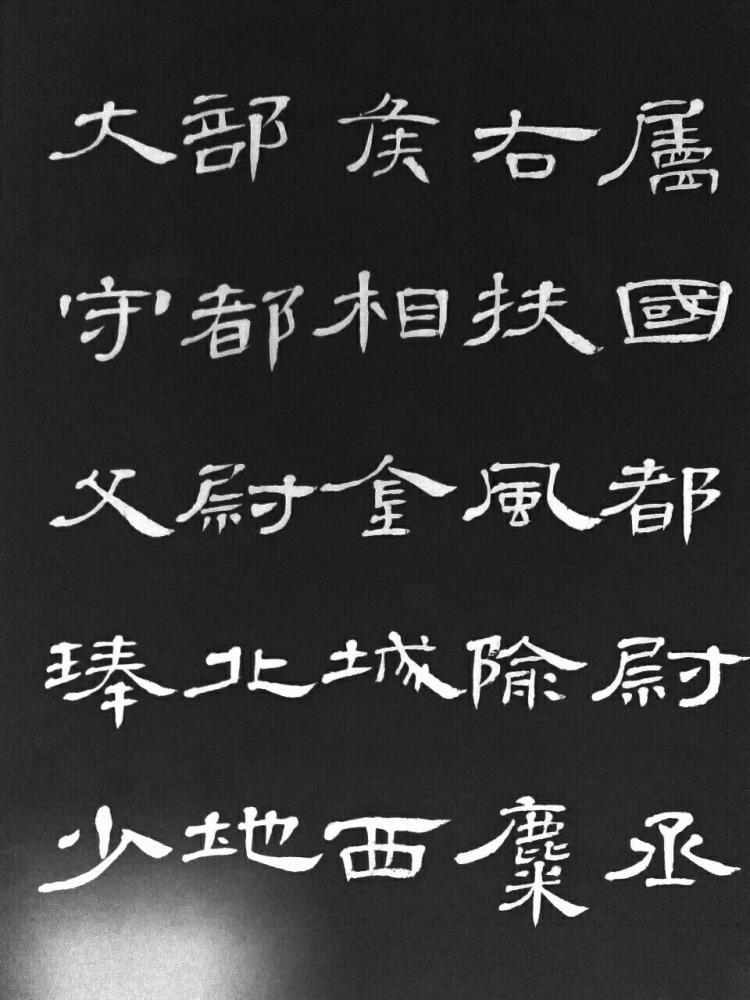 屬國都尉丞
右扶風隃麋
侯相金城西
部都尉北地
大守父琫少